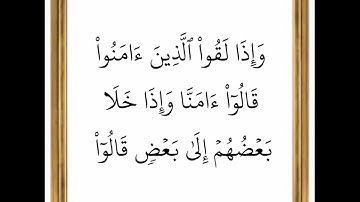 وَإِذَا لَقُوا۟ ٱلَّذِينَ ءَامَنُوا۟
قَالُوٓا۟ ءَامَنَّا وَإِذَا خَلَا
بَعْضُهُمْ إِلَىٰ بَعْضٍۢ قَالُوٓا۟